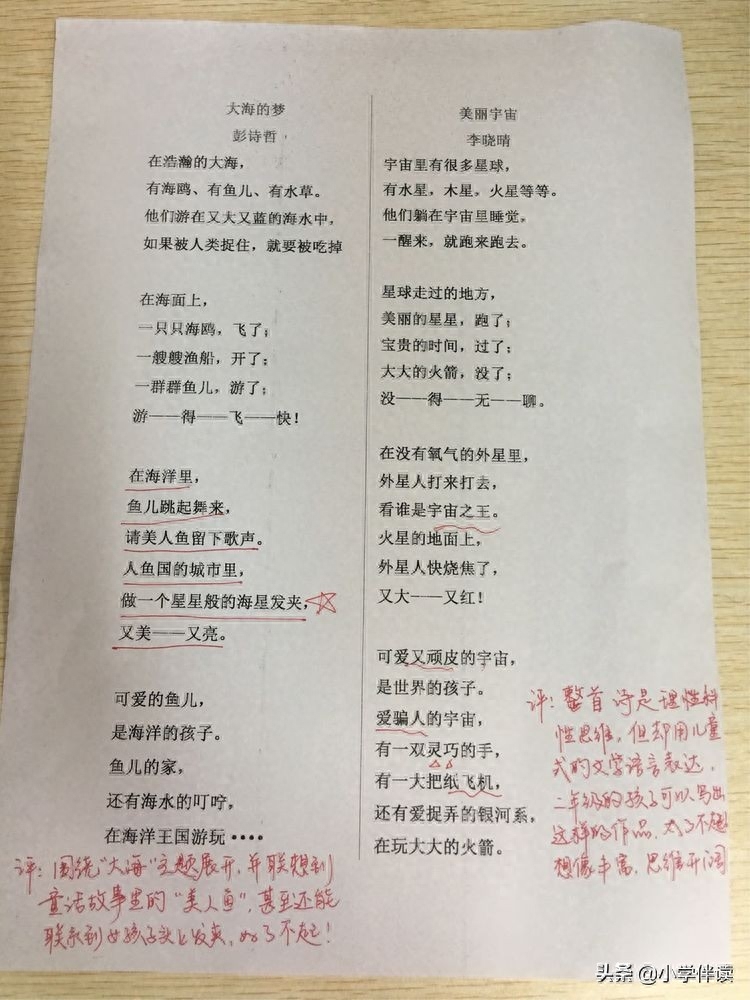 大海的梦
彭诗哲
在浩瀚的大海，
有海鸥、有鱼儿、有水草。
他们游在又大又蓝的海水中，
如果被人类捉住，就要被吃掉
在海面上，
一只只海鸥，飞了；
一艘艘渔船，开了；
一群群鱼儿，游了；
游——得——飞——快！
在海洋里，
鱼儿跳起舞来，
请美人鱼留下歌声。
人鱼国的城市里，
做一个星星般的海星发夹，
又美——又亮。
可爱的鱼儿，
是海洋的孩子。
鱼儿的家，
还有海水的叮咛，
在海洋王国游玩····
评：围绕“大海”主题展开，并联想到
童话故事里的“美人鱼”，甚至还能
联系到女孩子头上发夹，好了不起！
美丽宇宙
李晓晴
宇宙里有很多星球，
有水星，木星，火星等等。
他们躺在宇宙里睡觉，
一醒来，就跑来跑去。
星球走过的地方，
美丽的星星，跑了；
宝贵的时间，过了；
大大的火箭，没了；
没——得——无——聊。
在没有氧气的外星里，
外星人打来打去，
看谁是宇宙之王。
火星的地面上，
外星人快烧焦了，
又大——又红！
可爱又顽皮的宇宙，
是世界的孩子。
爱骗人的宇宙，
有一双灵巧的手，
有一大把纸飞机，
还有爱捉弄的银河系，
在玩大大的火箭。
评：整首诗是理性科
性思维，但却用儿童
式的文学语言表达，
二年级的孩子可以写出
这样的作品，太了不起
想像丰富，思维开阔
头条@小学伴读